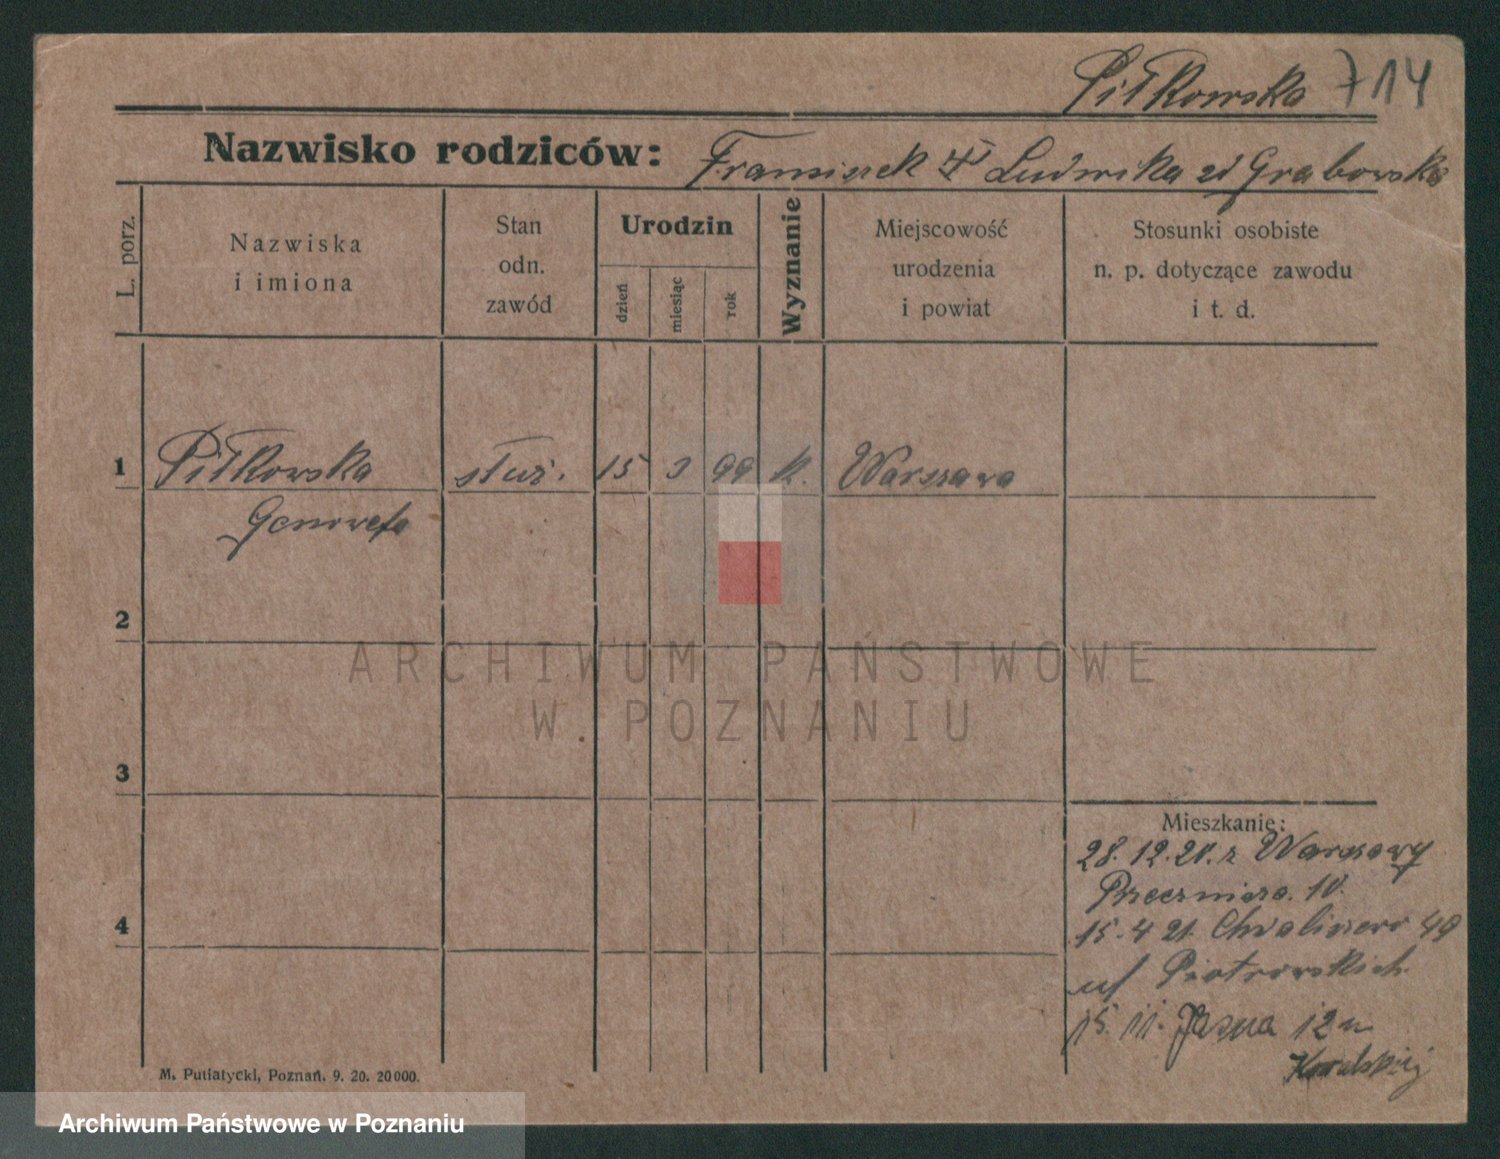 Piłkowska 714
Nazwisko rodziców: Franciszek Ludwika zd Grabowska
L. porz.
Nazwiska
i imiona
Stan
odn.
zawód
Urodzin
dzień
miesiąc
rok
Wyznanie
Miejscowość
urodzenia
i powiat
Stosunki osobiste
n. p. dotyczące zawodu
i t. d.
1 Piłkowska służ. 15 9 99 k. Warszawa
Genowefa
2
ARCHIWUM PAŃSTWOWE
W POZNANIU
3
Mieszkanie:
28.12.20. z Warszawy
10.
4
15.4 21. 49
Piotrowskich
15. 11. Jasna 12
M. Putiatycki, Poznań. 9. 20. 20000.
Archiwum Państwowe w Poznaniu